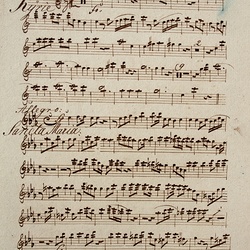 Kyrie
Allegro
Sancta Maria